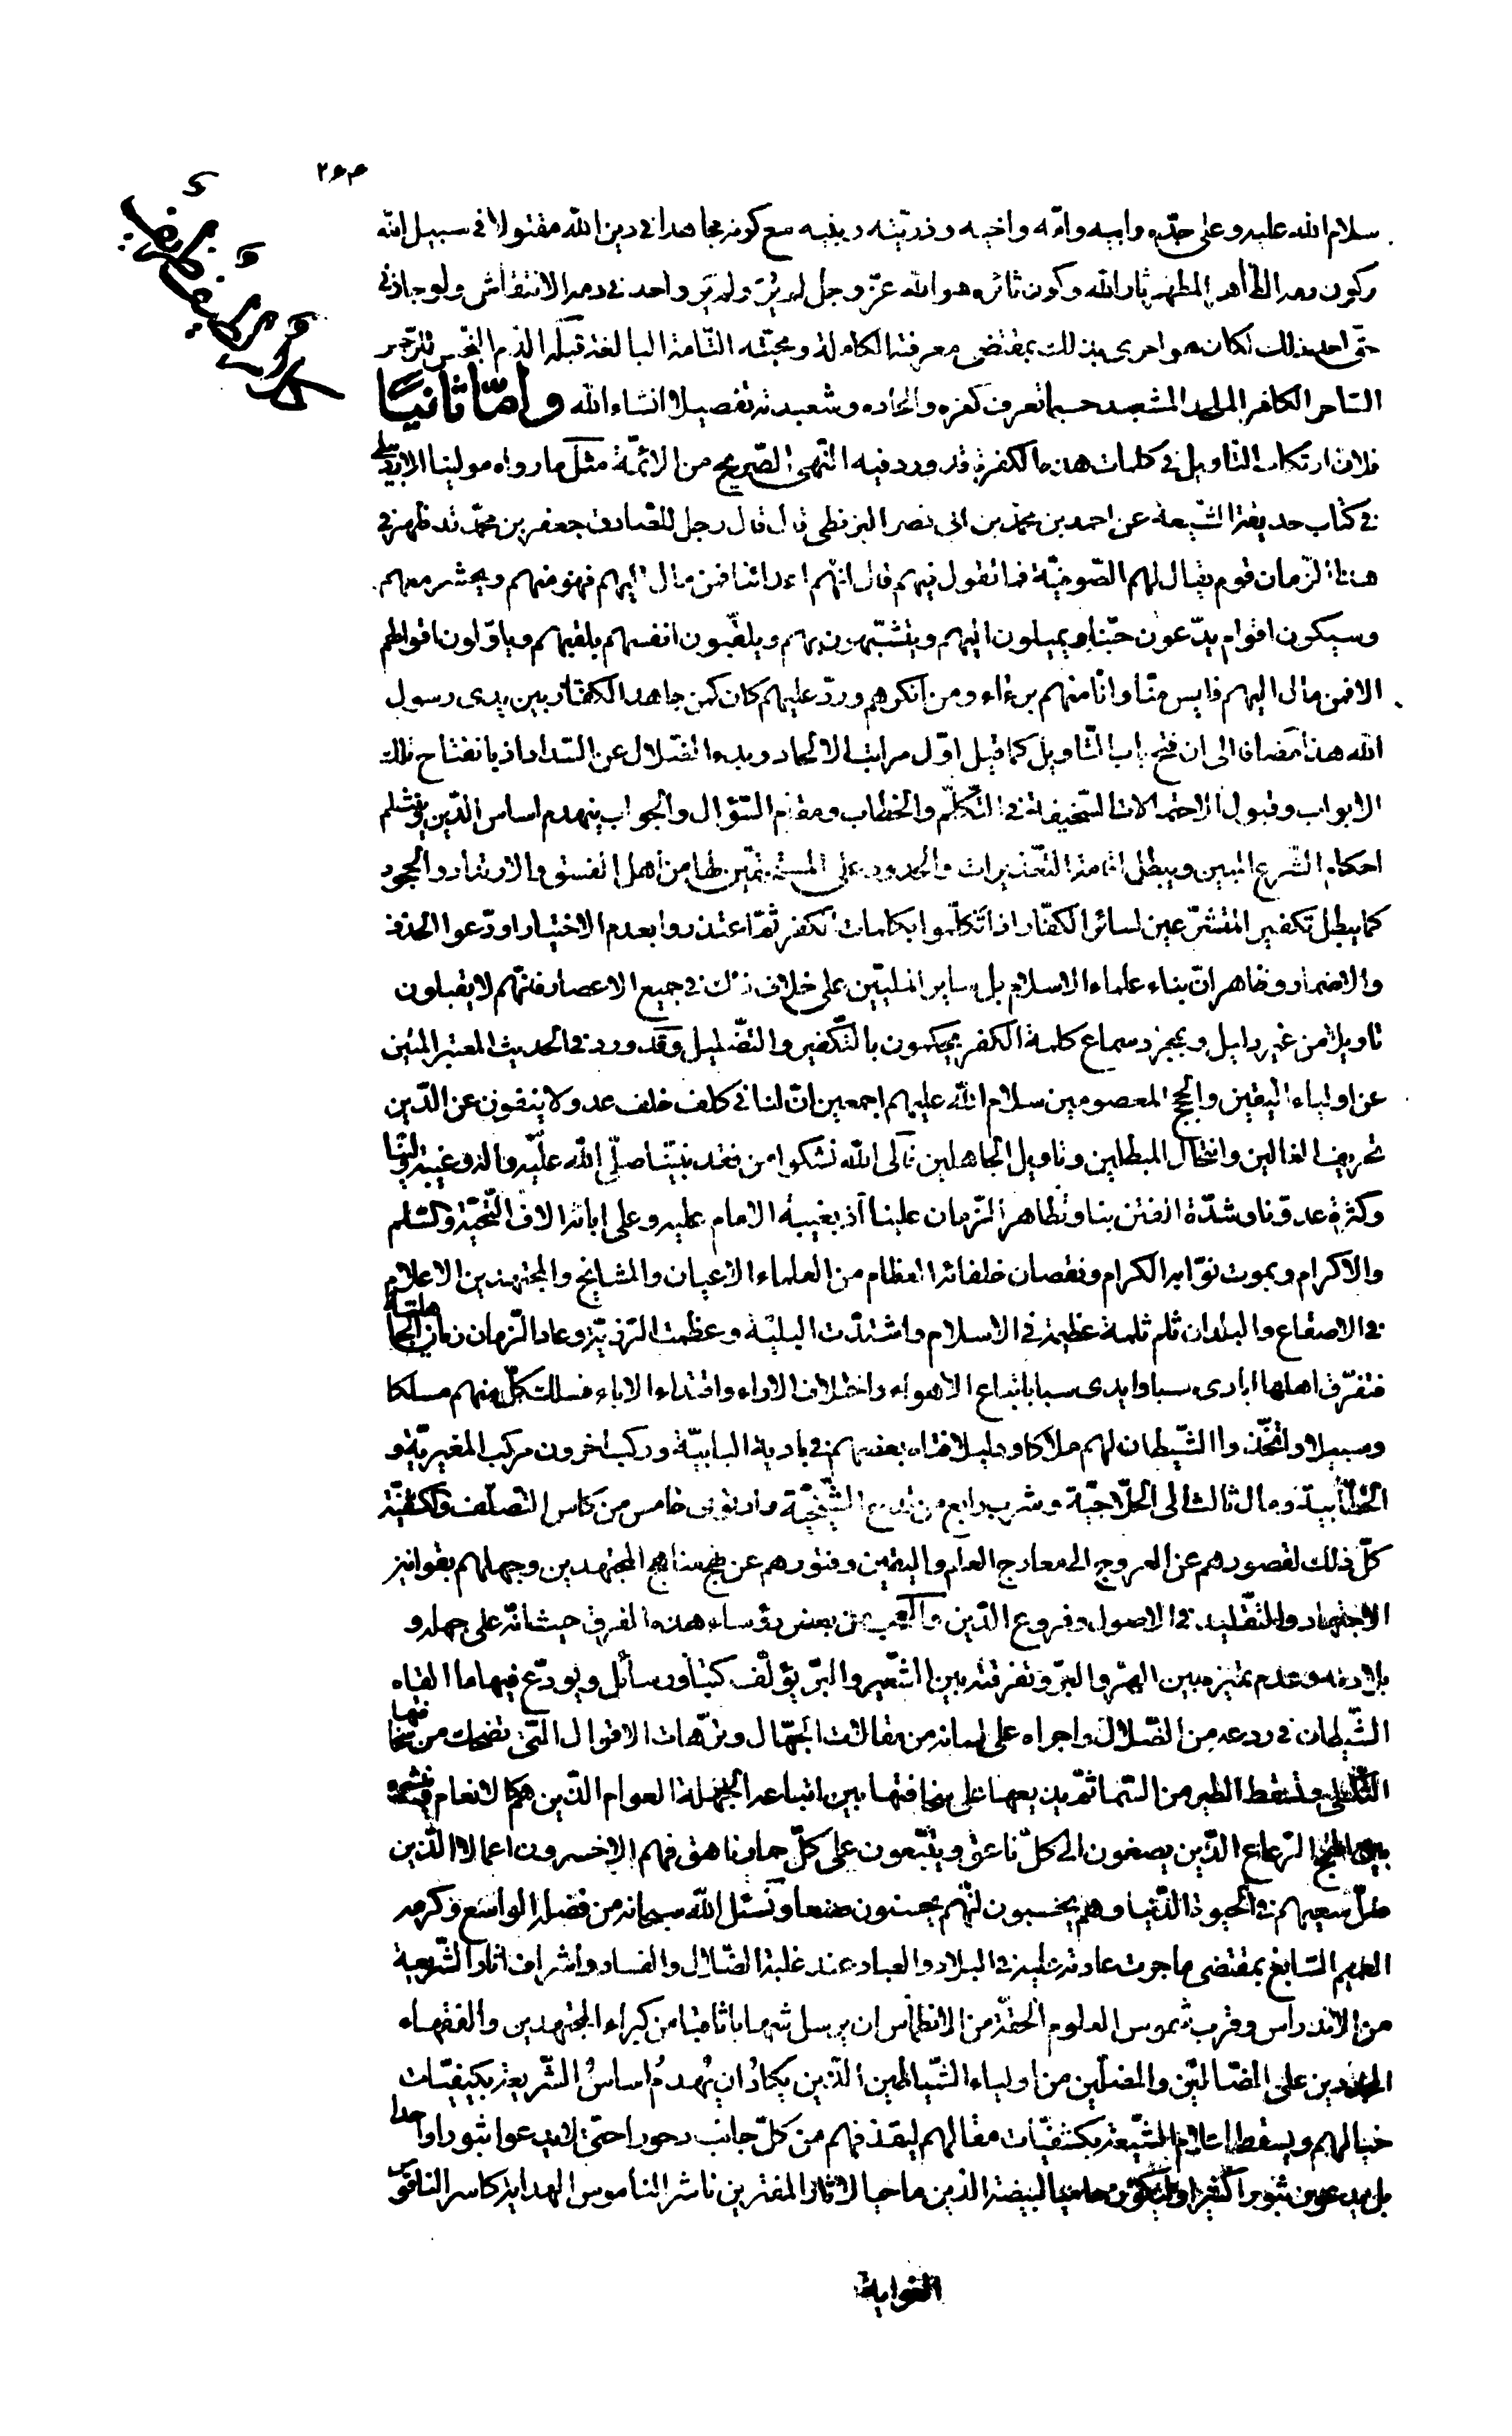 سلام الله عليه وعلى جدّه وابيه وامّه واخيه وذرّيته وبنيه مع كونه مجاهدا في دين الله مقتولا في سبيل الله
وكون دمه الطاهر المطهر ثار الله وكون ثائره هو الله عزّ وجل لم ير ولم ير واحد في دمه الانتقاش ولو جاز في
حق احد ذلك لكان هو احرى بذلك بمقتضى معرفته الكاملة ومحبّته التامة البالغة قبل الذم
الساحر الكافر الملحد المشعبد حسبما تعرف كفره والحاده وشعبدته تفصيلا انشاء الله وامّا ثانيًا
فلان ارتكاب التاويل في كلمات هذه الكفرة قد ورد فيه النهى الصّريح من الائمّة مثل ما رواه مولينا الاردبيلي
في كتاب حديقة الشيعة عن احمد بن محمد بن ابى نصر البزنطى قال قال رجل للصادق جعفر بن محمّد قد ظهر في
هذا الزمان قوم يقال لهم الصّوفيّة فما تقول فيهم قال انهم اعدائنا فمن مال اليهم فهو منهم ويحشر معهم
وسيكون اقوام يدّعون حبّنا ويميلون اليهم ويتشبّهون بهم ويلقّبون انفسهم بلقبهم وياوّلون اقوالهم
الا فمن مال اليهم فليس منّا وانا منهم برءاء ومن انكرهم وردّ عليهم كان كمن جاهد الكفّار بين يدى رسول
الله هذا مضافا الى ان فتح باب التّاويل كما قيل اوّل مراتب الالحاد وبدء الضّلال عن السّداد اذ بانفتاح تلك
الابواب وقبول الاحتمالات السّخيفة في التّكلّم والخطاب ومقام السّؤال والجواب ينهدم اساس الدّين وينثلم
احكام الشّرع المبين ويبطل اقامة التعذيرات والحدود على المستحقّين لها من اهل الفسق والارتداد والجحود
كما يبطل تكفير المتشرّعين لسائر الكفّار اذا تكلّموا بكلمات الكفر ثمّ اعتذروا بعدم الاختيار او دّعوا الحذف
والاضمار وظاهر انّ بناء علماء الاسلام بل ساير المليّين على خلاف ذلك في جميع الاعصار فانهم لا يقبلون
تاويلا من غير دليل وبمجرد سماع كلمة الكفر يحكمون بالتّكفير والتضّليل وقد ورد في الحديث المعتبر المتين
عن اولياء اليقين والحجج المعصومين سلام الله عليهم اجمعين انّ لنا في كل خلف عدولا ينفون عن الدّين
تحريف الغالين وانتحال المبطلين وتاويل الجاهلين فالى الله نشكوا من فقد نبيّنا صلّى الله عليه واله وغيبة وليّنا
وكثرة عدوّنا وشدّة الفتن بنا وتظاهر الزّمان علينا اذ بغيبة الامام عليه وعلى ابائه الاف التّحيّة والسّلم
والاكرام وبموت نوّابه الكرام ونقصان خلفائه العظام من العلماء الاعيان والمشايخ والمجتهدين الاعلام
في الاصقاع والبلدان ثلم ثلمة عظيمة في الاسلام واشتدّت البليّة وعظمت الرّزيّة وعاد الزّمان زمان الجاهلية
فتفرّق اهلها ايادى سبا وايدى سبا باتباع الاهواء واختلاف الاراء واقتداء الاباء فسلك كلّ منهم مسلكا
وسبيلا واتّخذوا الشّيطان لهم ملاكا ودليلا فتاه بعضهم في بادية البابيّة وركب اخرون مركب المغيريّة و
الخطّابية ومال ثالث الى الحلّاجيّة وشرب رابع من قدح الشّيخيّة وارتوى خامس من كاس التصلّف والكشفيّة
كلّ ذلك لقصورهم عن العروج الى معارج العلم واليقين وفتورهم عن نهج مناهج المجتهدين وجهلهم بقوانين
الاجتهاد والتقليد في الاصول وفروع الدّين والعجب من بعض رؤساء هذه الفرق حيث انّه على جهله و
بلادته وعدم تميزه بين الهرّ والبرّ وتفرقته بين الشّعير والبرّ يؤلّف كتبا ورسائل ويودع فيها ما القاه
الشّيطان في روعه من الضّلال واجراه على لسانه من مقالات الجهّال وترّهات الاقوال الّتى تضحك من سخافتها
الثّكلى وتسقط الطير من السّما ثمّ يذيعها على سخافتها بين اتباعه الجهلة العوام الذّين هم كالانعام
الهمج الرّعاع الذّين يصغون الى كلّ ناعق ويتّبعون على كلّ حمار ناهق فهم الاخسرون اعمالا الّذين
ضلّ سعيهم في الحيوة الدّنيا وهم يحسبون انّهم يحسنون صنعا ونسئل الله سبحانه من فضله الواسع وكرمه
العميم السّابغ بمقتضى ما جرت عادته عليه في البلاد والعباد عند غلبة الضّلال والفساد واشراف اثار الشّريعة
من الاندراس وقرب شموس العلوم الحقّة من الانطماس ان يرسل شهابا ثاقبا من كبراء المجتهدين والفقهاء
على الضّالّين والمضلّين من اولياء الشّياطين الذّين يكادُ ان يُهدمُ اساسُ الشّريعة بكيفيّات
خيالهم ويسقط اعلام الشّيعة بكشفيّات مقالهم ليقذفهم من كلّ جانب دحورا حتّى لا يدعوا ثبورا واحدا
بل يدعون ثبورا كثيرا وليكون حاميا لبيضة الدّين ماحيا لاثار المفترين ناشر الناموس الهداية كاسر الناقوس
الغواية